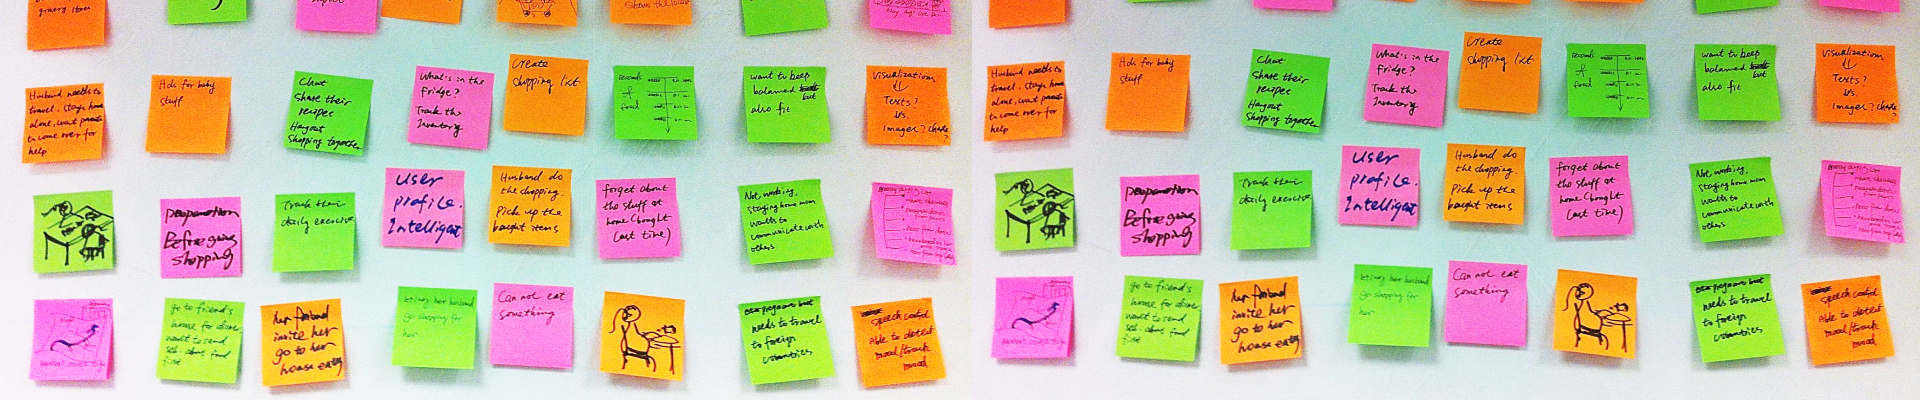 grocery items
Husband needs to
travel. Stays home
alone, want parents
to come over for
help
Ads for baby
stuff
Chat
Share their
recipes
Hangout
Shopping together
What's in the
fridge?
Track the
Inventory
Create
shopping list
records
of
food
want to keep
balanced
but
also fit
Visualization
Texts?
Vs.
Images? Charts
?
preparation
Before going
shopping
Track their
daily exercise
User
profile.
Intelligent
Husband do
the shopping.
Pick up the
bought items
forget about
the stuff at
home (bought
last time)
Not working,
staying home mom
wants to
communicate with
others
go to friend's
house for dinner
want to send
food
Her friend
invite her
go to her
house eating
letting her husband
go shopping for
her
Can not eat
something
pregnant but
needs to travel
to foreign
countries
speech control
Able to detect
mood/track
mood
Husband needs to
travel. Stays home
alone, want parents
to come over for
help
Ads for baby
stuff
Chat
Share their
recipes
Hangout
Shopping together
What's in the
fridge?
Track the
Inventory
Create
shopping list
records
of
food
want to keep
balanced
but
also fit
Visualization
Texts?
Vs.
Images? Charts
?
preparation
Before going
shopping
Track their
daily exercise
User
profile.
Intelligent
Husband do
the shopping.
Pick up the
bought items
forget about
the stuff at
home (bought
last time)
Not working,
staying home mom
wants to
communicate with
others
go to friend's
house for dinner
want to send
food
Her friend
invite her
go to her
house eating
letting her husband
go shopping for
her
Can not eat
something
pregnant but
needs to travel
to foreign
countries
speech control
Able to detect
mood/track
mood